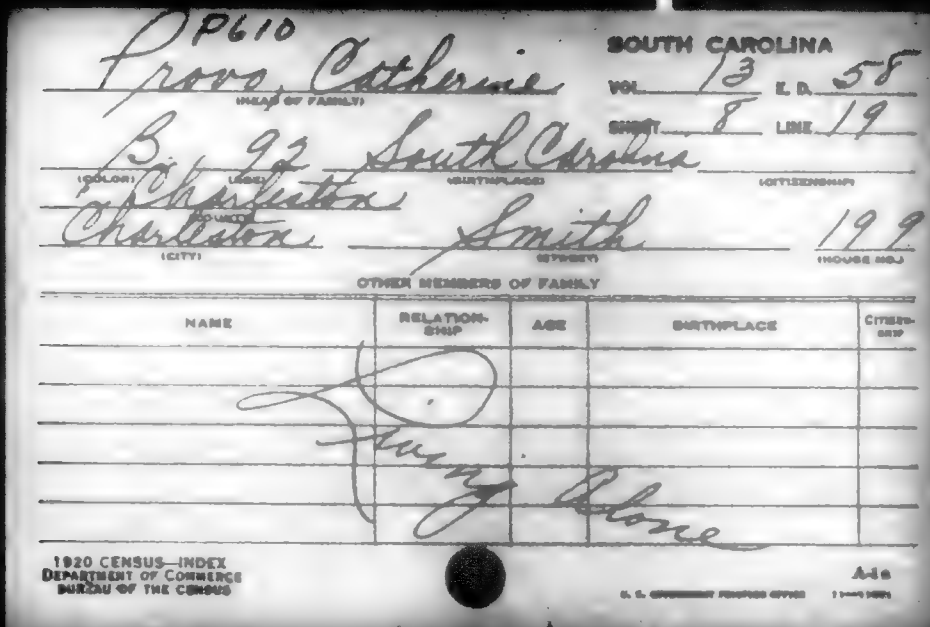 P610
Provo, Catherine
(HEAD OF FAMILY)
SOUTH CAROLINA
VOL. 13 E. D. 58
SHEET 8 LINE 19
B 92 South Carolina
(COLOR) (AGE) (BIRTHPLACE) (CITIZENSHIP)
Charleston
(COUNTY)
Charleston Smith 199
(CITY) (STREET) (HOUSE NO.)
OTHER MEMBERS OF FAMILY
NAME RELATION-SHIP AGE BIRTHPLACE CITIZEN-SHIP
Living Alone
1920 CENSUS—INDEX
DEPARTMENT OF COMMERCE
BUREAU OF THE CENSUS
A-1a
U. S. GOVERNMENT PRINTING OFFICE